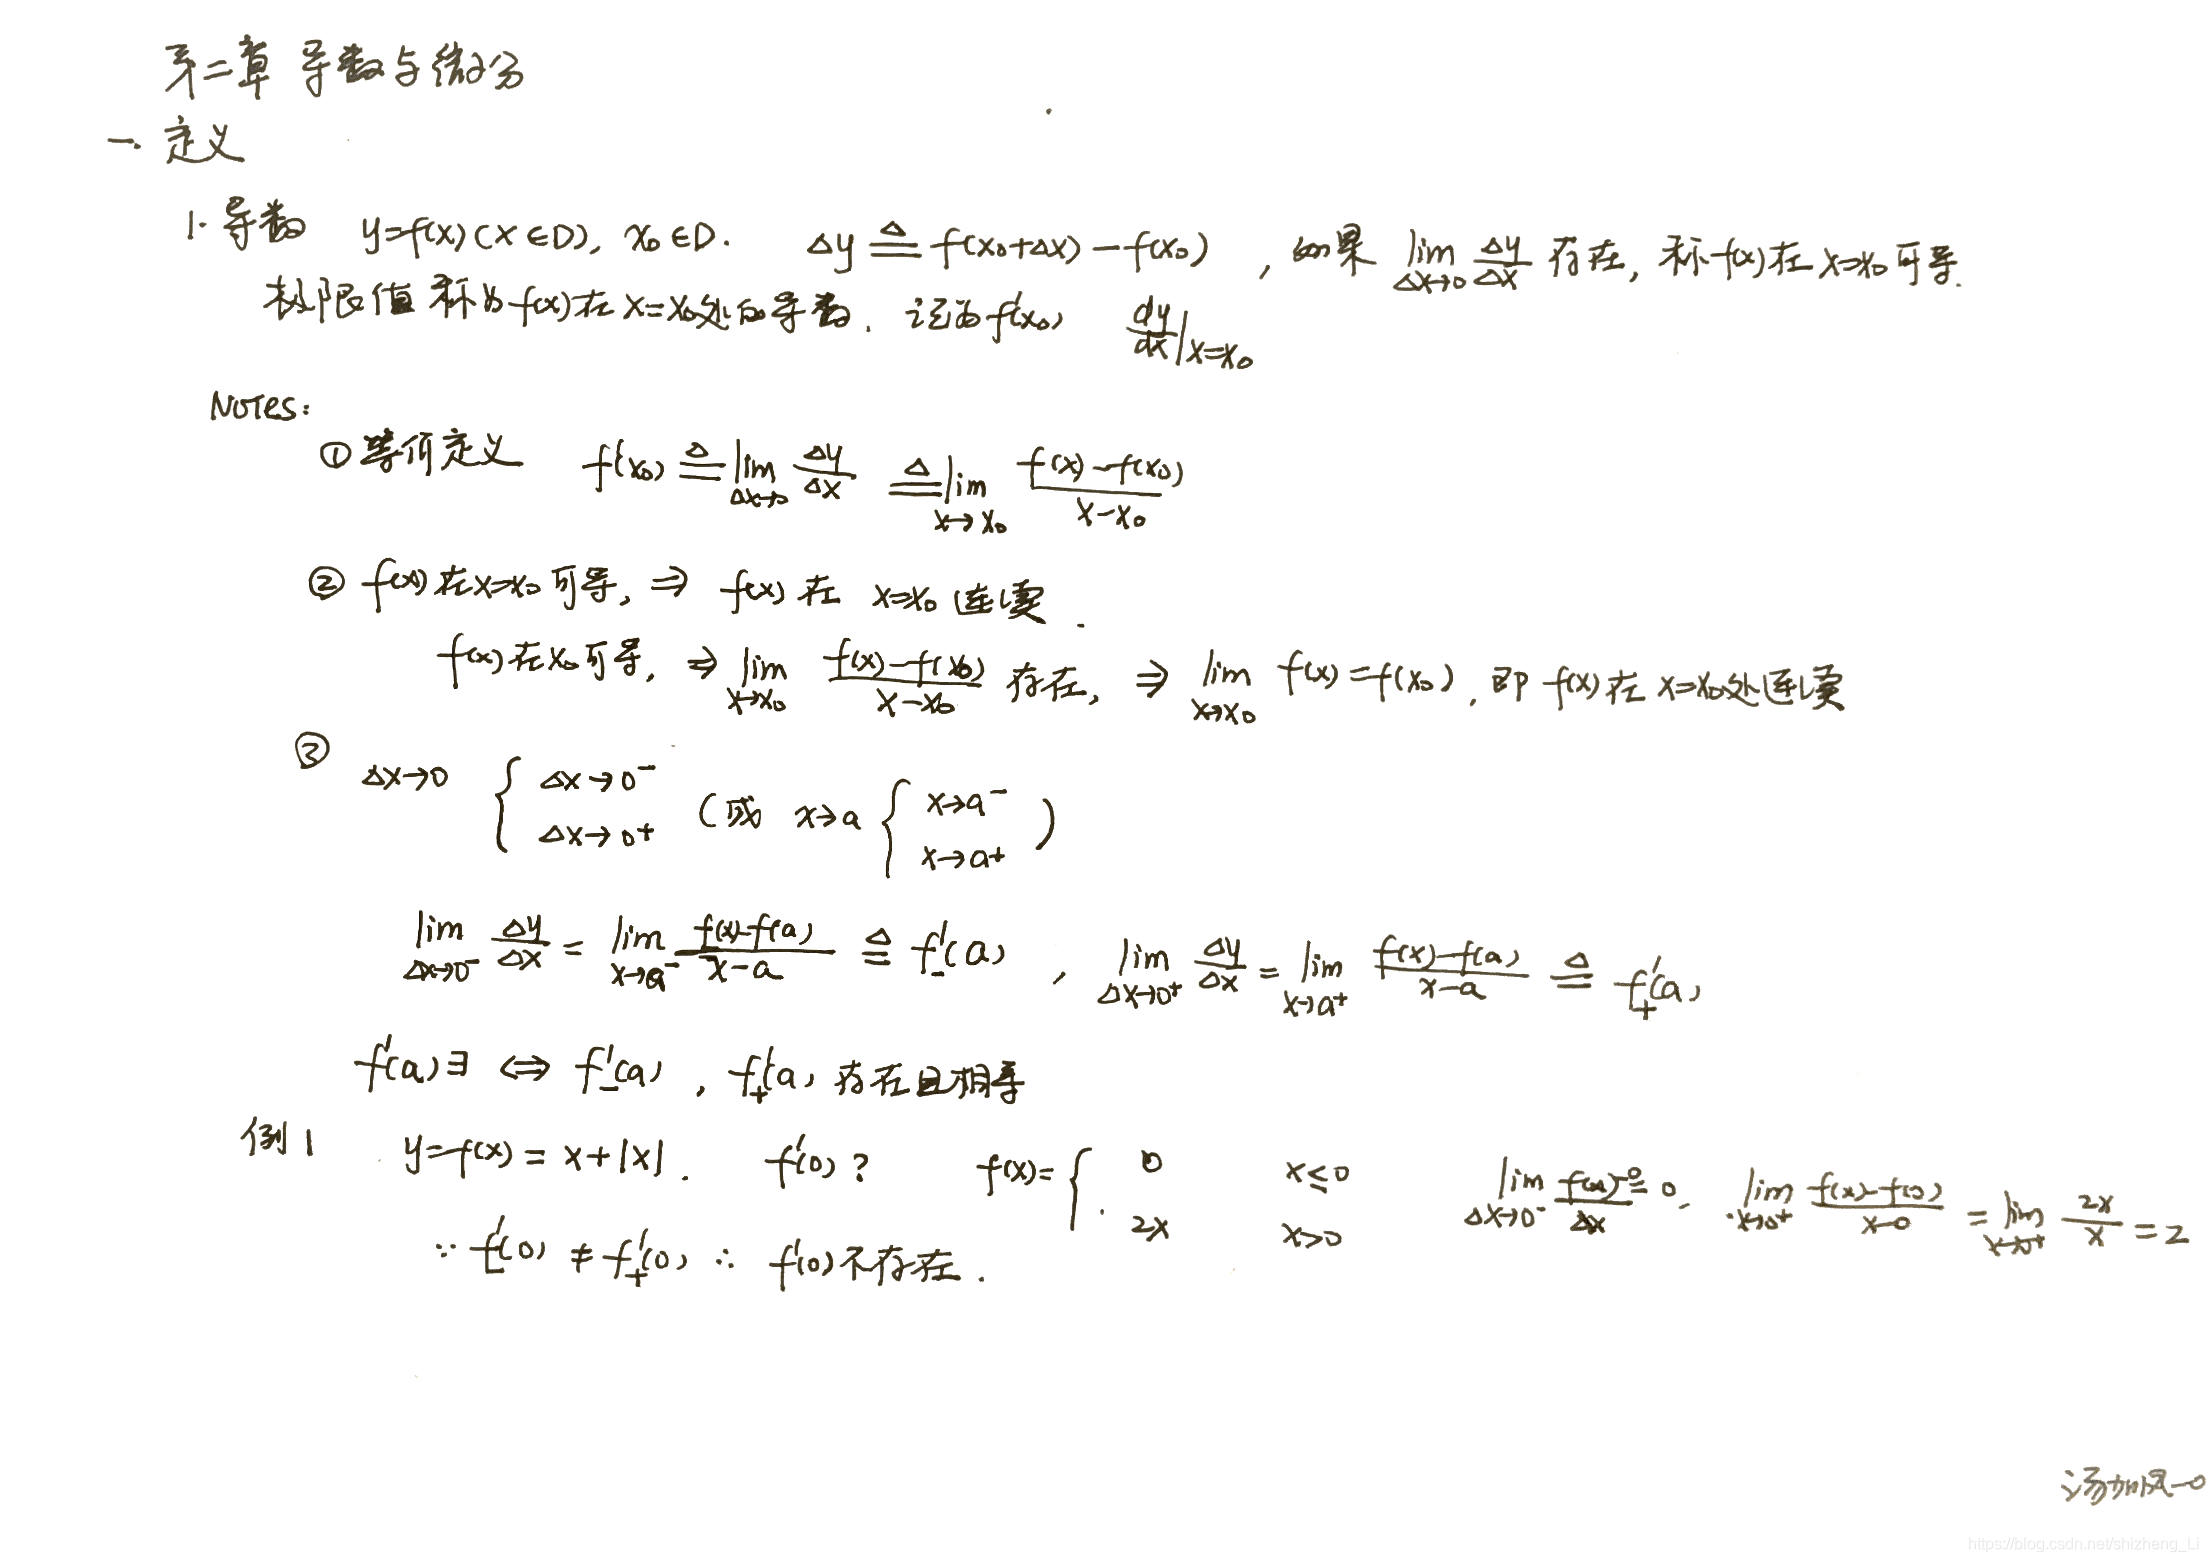 第二章 导数与微分
一. 定义
1. 导数 y=f(x) (x∈D), x₀∈D. Δy ≜ f(x₀+Δx)-f(x₀) , 如果 lim_{Δx→0} Δy/Δx 存在, 称f(x)在x=x₀可导.
极限值称为f(x)在x=x₀处的导数. 记为f'(x₀) dy/dx|x=x₀
Notes:
① 等价定义 f'(x₀) ≜ lim_{Δx→0} Δy/Δx ≜ lim_{x→x₀} (f(x)-f(x₀))/(x-x₀)
② f(x)在x=x₀可导, ⇒ f(x)在 x=x₀连续.
f(x)在x₀可导, ⇒ lim_{x→x₀} (f(x)-f(x₀))/(x-x₀) 存在, ⇒ lim_{x→x₀} f(x)=f(x₀), 即 f(x)在x=x₀处连续
③ Δx→0 { Δx→0⁻ ; Δx→0⁺ (或 x→a { x→a⁻ ; x→a⁺ )
lim_{Δx→0⁻} Δy/Δx = lim_{x→a⁻} (f(x)-f(a))/(x-a) ≜ f'₋(a) , lim_{Δx→0⁺} Δy/Δx = lim_{x→a⁺} (f(x)-f(a))/(x-a) ≜ f'₊(a)
f'(a)∃ ⇔ f'₋(a) , f'₊(a) 存在且相等
例1 y=f(x)=x+|x|. f'(0)? f(x)={ 0 x≤0 ; 2x x>0 lim_{Δx→0⁻} (f(x)-0)/Δx = 0. lim_{x→0⁺} (f(x)-f(0))/(x-0) = lim_{x→0⁺} 2x/x = 2
∵ f'₋(0) ≠ f'₊(0) ∴ f'(0)不存在.
汤加凤—0
https://blog.csdn.net/shizheng_Li